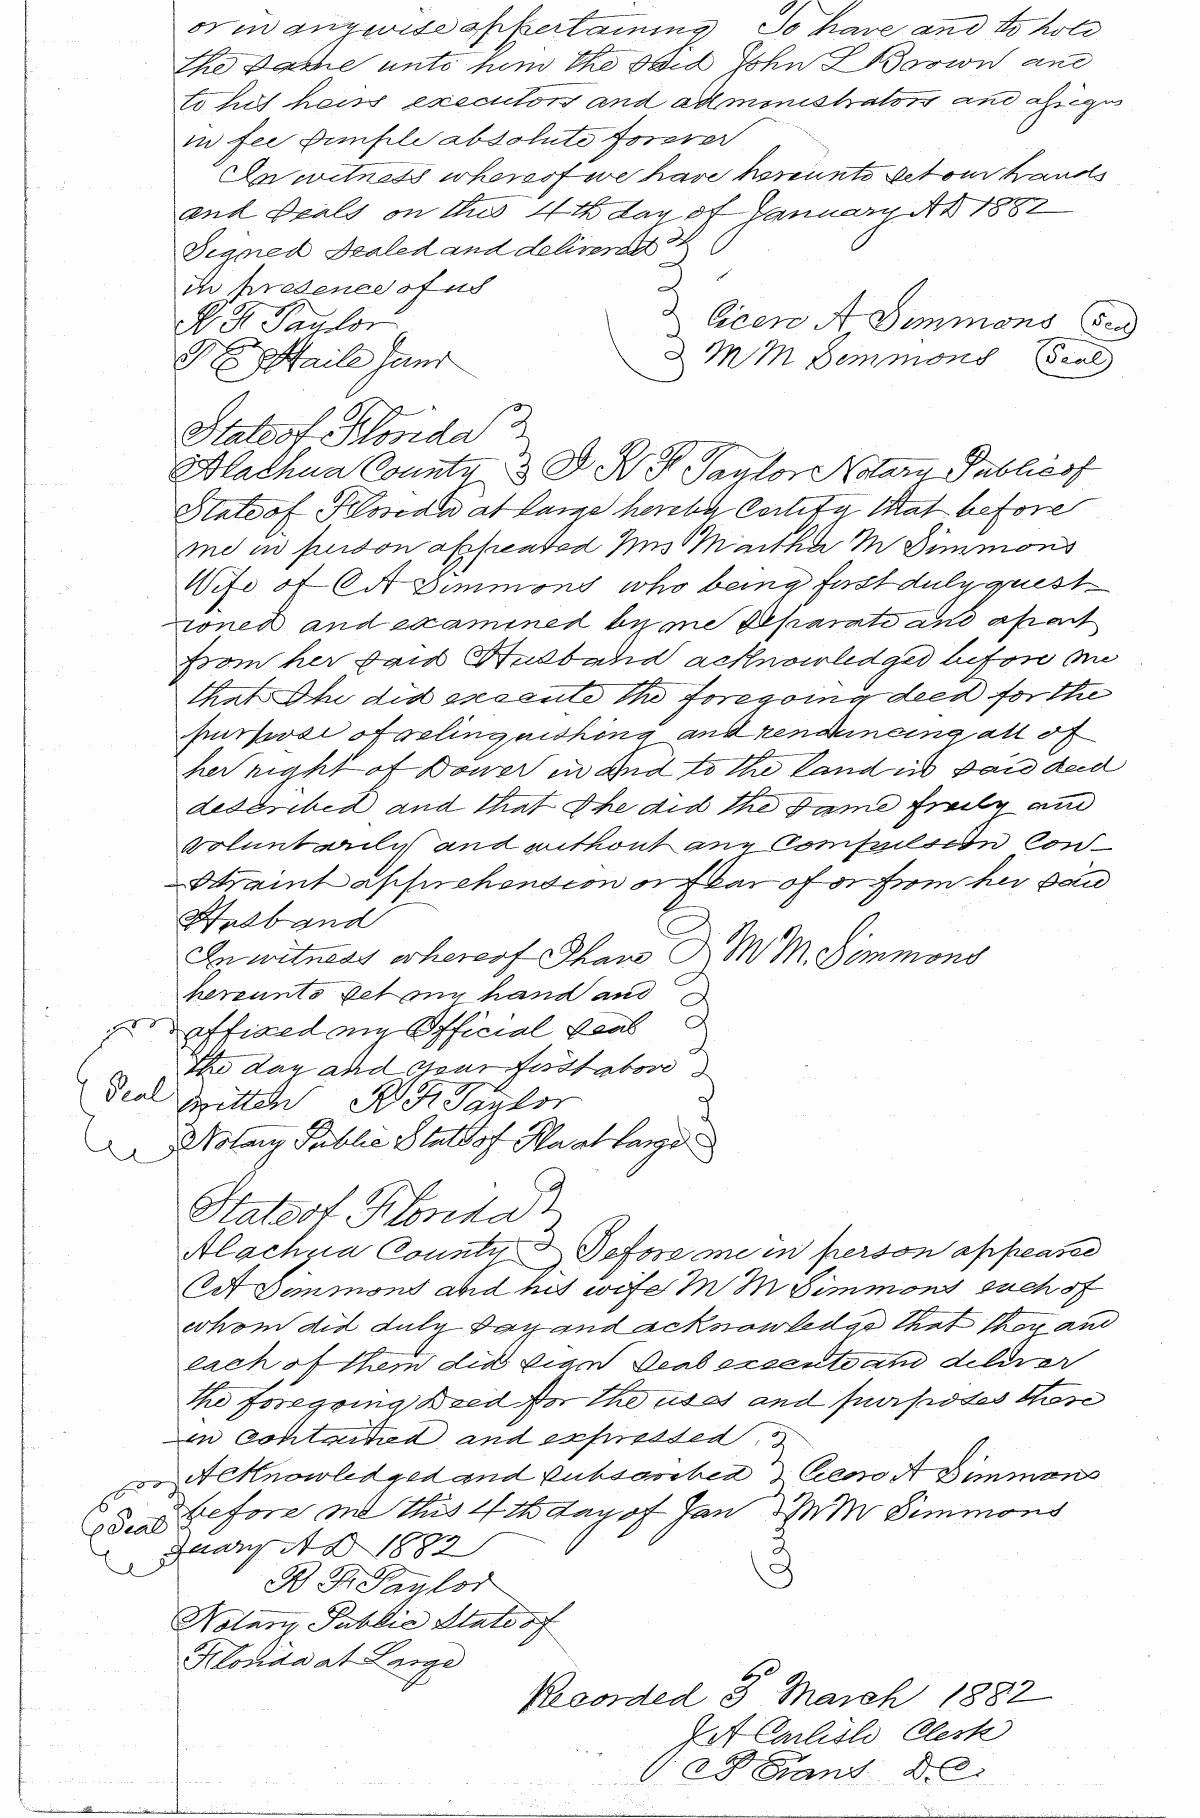 or in anywise appertaining To have and to hold
the same unto him the said John L Brown and
to his heirs executors and administrators and assigns
in fee simple absolute forever
In witness whereof we have hereunto set our hands
and seals on this 4th day of January AD 1882
Signed sealed and delivered
in presence of us
R F Taylor
Cicero A Simmons (Seal)
Haile Junr
M M Simmons (Seal)
State of Florida
Alachua County I R F Taylor Notary Public of
State of Florida at large hereby Certify that before
me in person appeared Mrs Martha M Simmons
Wife of C A Simmons who being first duly quest-
ioned and examined by me separate and apart
from her said Husband acknowledged before me
that She did execute the foregoing deed for the
purpose of relinquishing and renouncing all of
her right of Dower in and to the land in said deed
described and that She did the same freely and
voluntarily and without any Compulsion Con-
straint apprehension or fear of or from her said
Husband
In witness whereof I have M M. Simmons
hereunto set my hand and
affixed my Official seal
the day and year first above
Seal written R F Taylor
Notary Public State of Fla at large
State of Florida
Alachua County Before me in person appeared
C A Simmons and his wife M M Simmons each of
whom did duly say and acknowledge that they and
each of them did sign seal execute and deliver
the foregoing Deed for the uses and purposes there
in contained and expressed
Acknowledged and subscribed Cicero A Simmons
before me this 4th day of Jan M M Simmons
Seal
uary A D 1882
R F Taylor
Notary Public State of
Florida at Large
Recorded March 1882
J A Carlisle Clerk
Evans D.C.